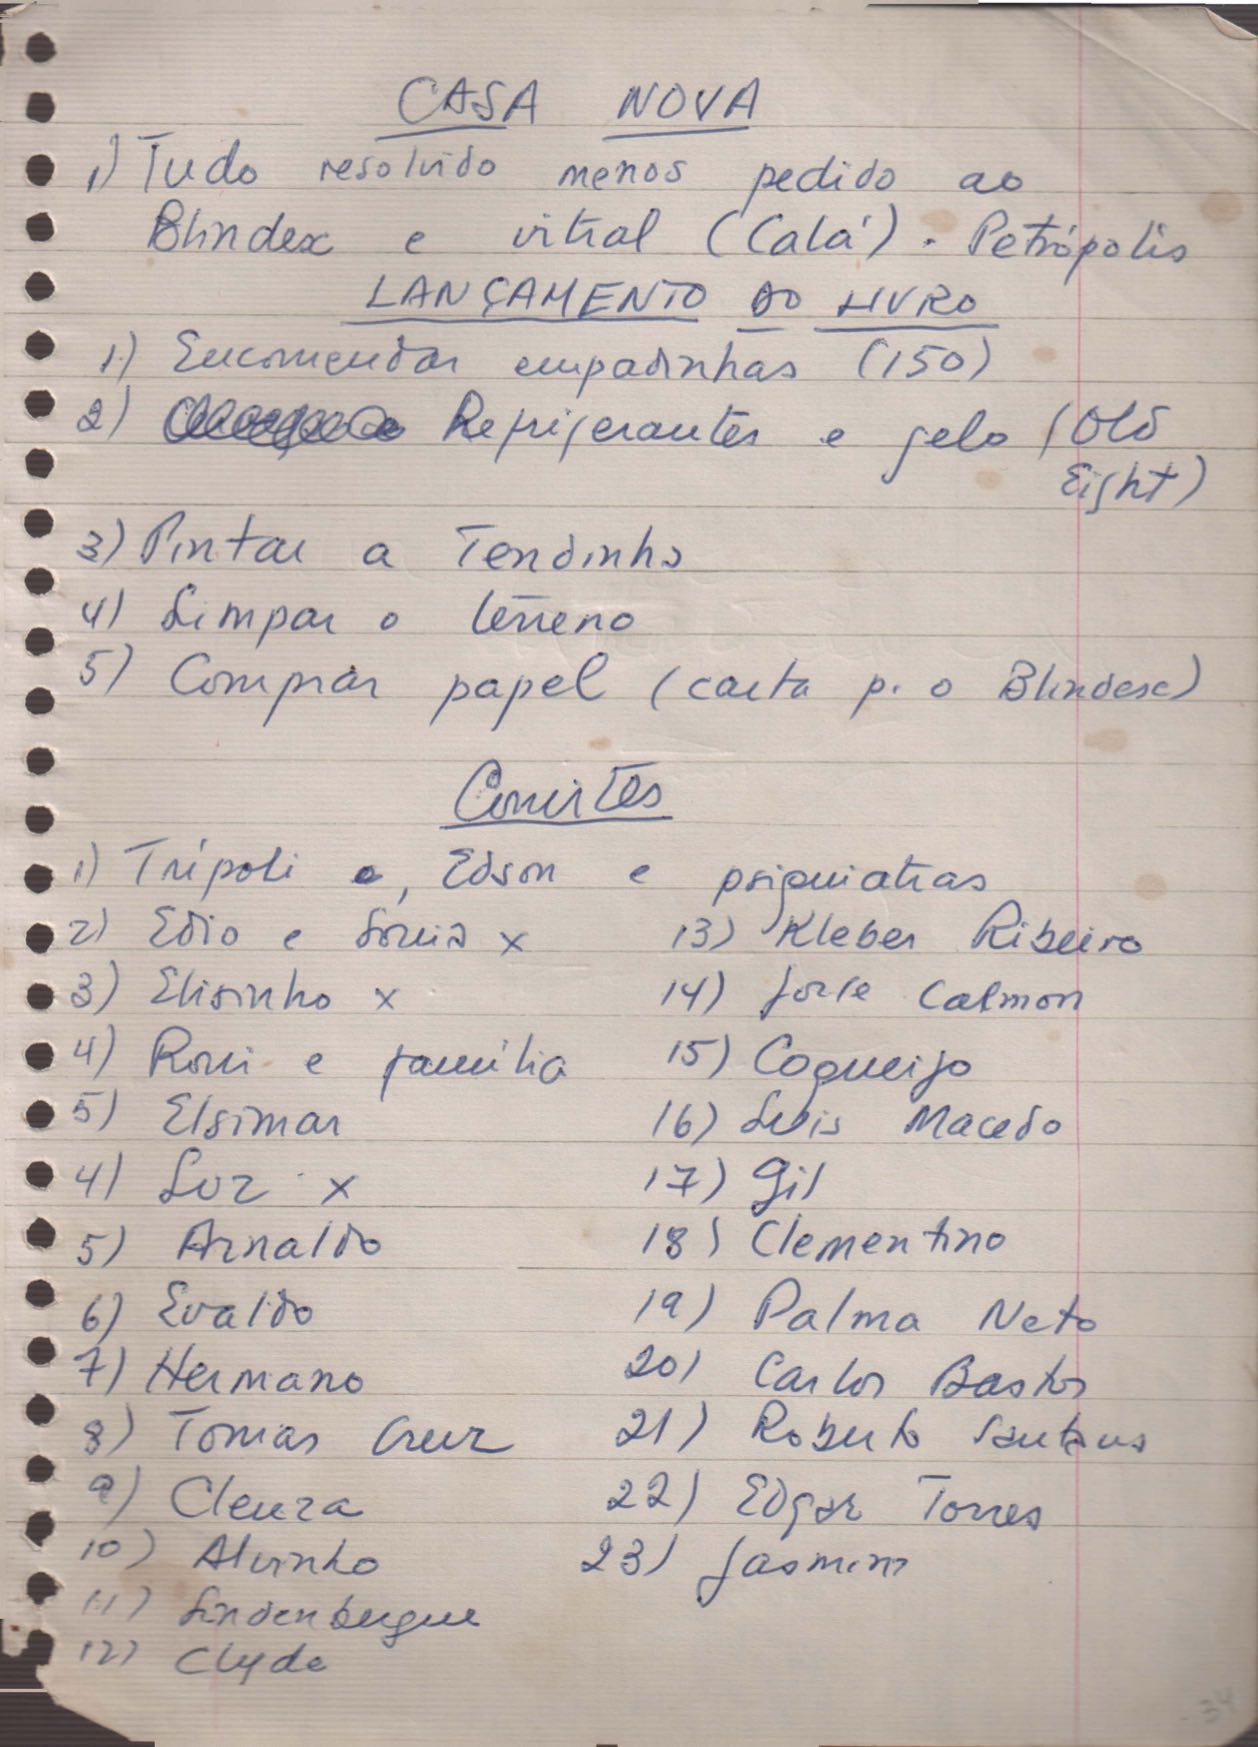 CASA NOVA
1) Tudo resolvido menos pedido ao
Blindex e vitral (Calá). Petrópolis
LANÇAMENTO DO LIVRO
1) Encomendar empadinhas (150)
2) Refrigerantes e gelo (Old
Eight)
3) Pintar a Tendinha
4) Limpar o terreno
5) Comprar papel (carta p. o Blindex)
Convites
1) Trípoli e, Edson e psiquiatras
2) Edio e Sônia x
3) Elisinho x
4) Roni e família
5) Elsimar
4) Luz x
5) Arnaldo
6) Evaldo
7) Hermano
8) Tomas Cruz
9) Cleuza
10) Alvinho
11) Lindenbergue
12) Clyde
13) Kleber Ribeiro
14) Jorge Calmon
15) Coqueijo
16) Luis Macedo
17) Gil
18) Clementino
19) Palma Neto
20) Carlos Bastos
21) Roberto Santos
22) Edgar Torres
23) Jasmim
34